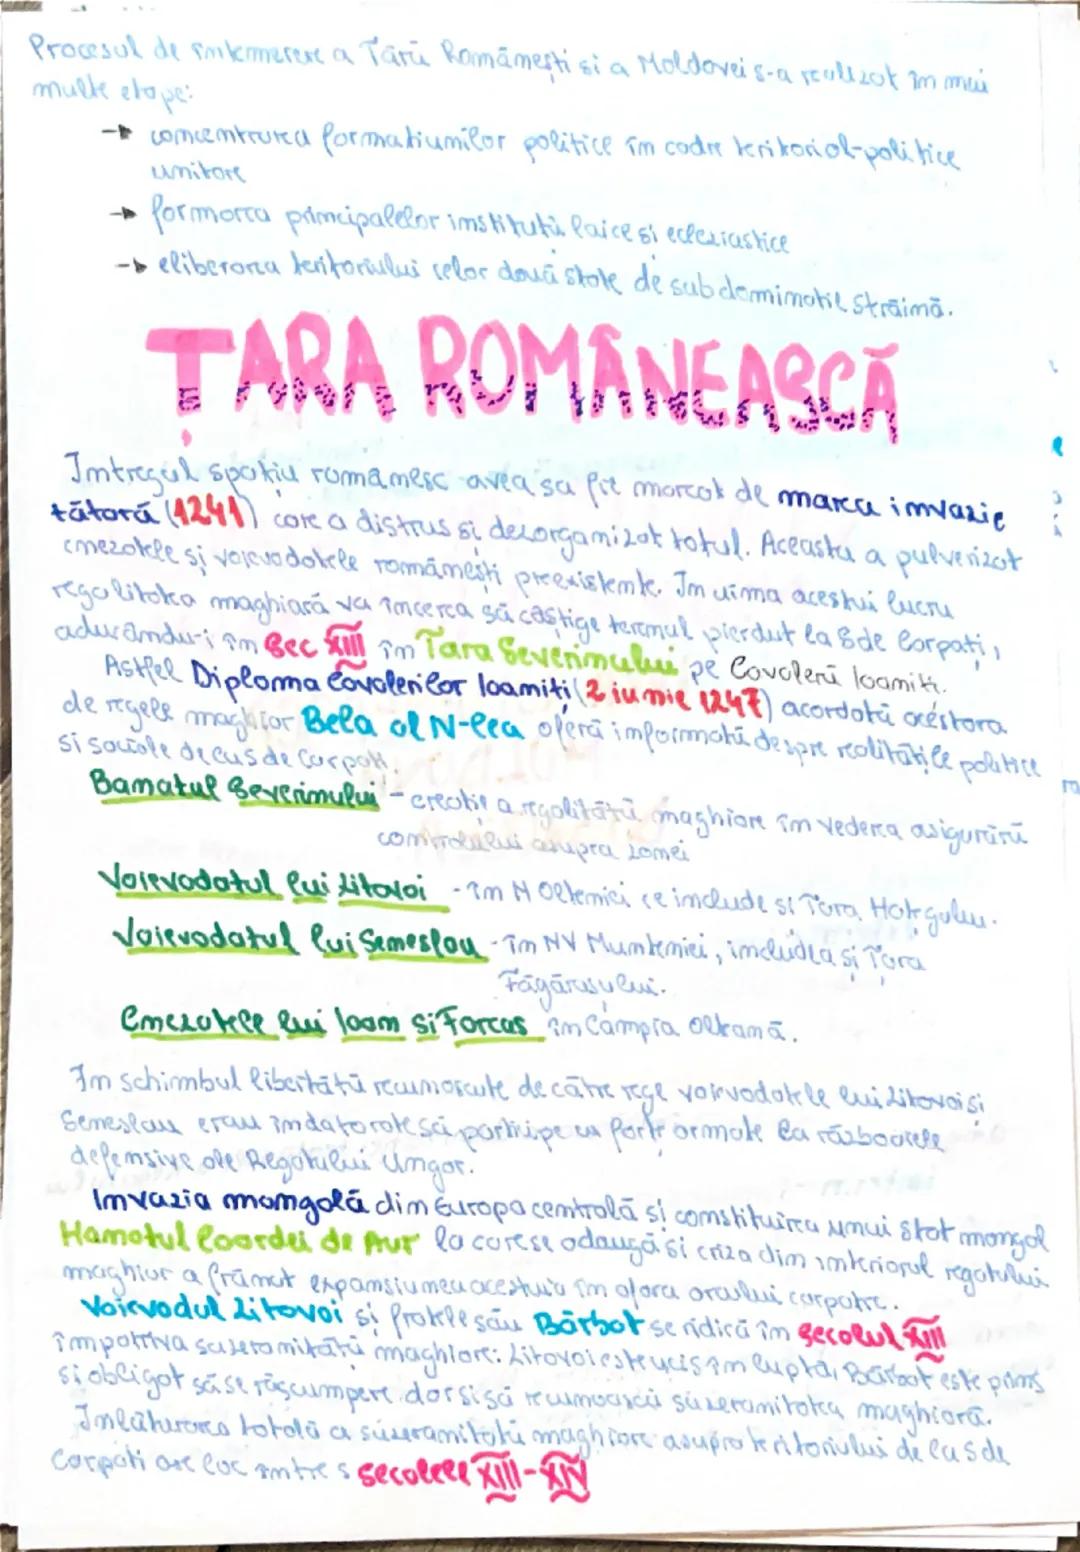 Procesul de întemeiere a Țării Românești si a Moldovei s-a realizat în mai
multe etape:
→ concentrarea formatiunilor politice în cadre teritorial-politice
unitare
→ formarea principalelor instituții laice si ecleziastice
→ eliberarea teritoriului celor două state de sub dominatie străină.
ȚARA ROMÂNEASCĂ
Întregul spațiu romanesc avea sa fie marcat de marea invazie
tătară (1241) care a distrus si dezorganizat totul. Aceasta a pulverizat
cnezatele și voievodatele românești preexistente. În urma acestui lucru
regalitatea maghiară va incerca să castige terenul pierdut la S de Carpați,
aducându-i în Sec XIII în Țara Severinului pe Cavalerii Ioaniti.
Astfel Diploma Cavalerilor Ioaniți (2 iunie 1247) acordată acestora
de regele maghiar Bela al IV-lea oferă informatii despre realitățile politice
si sociale de la S de Carpati:
Banatul Severinului - creatie a regalității maghiare în vederea asigurării
controlului asupra zonei
Voievodatul lui Litovoi - în N Olteniei ce include si Țara Hațegului.
Voievodatul lui Semeslau - în NV Munteniei, includea și Țara
Făgărașului.
Cnezatele lui Ioan si Farcas în Câmpia Olteană.
În schimbul libertății recunoscute de către rege voievodatele lui Litovoi si
Semeslau erau indatorate să participe cu forte armate la războaiele
defensive ale Regatului Ungar.
Invazia mongolă din Europa centrală și constituirea unui stat mongol
Hanatul Hoardei de Aur la care se adaugă si criza din interiorul regatului
maghiar a frânat expansiunea acestuia în afara arcului carpatic.
Voievodul Litovoi și fratele său Bărbat se ridică în secolul XIII
împotriva suzeranității maghiare: Litovoi este ucis în luptă, Bărbat este prins
si obligat să se răscumpere dar si să recunoască suzeranitatea maghiară.
Înlăturarea totală a suzeranității maghiare asupra teritoriului de la S de
Carpati are loc intre s secolele XIII-XIV